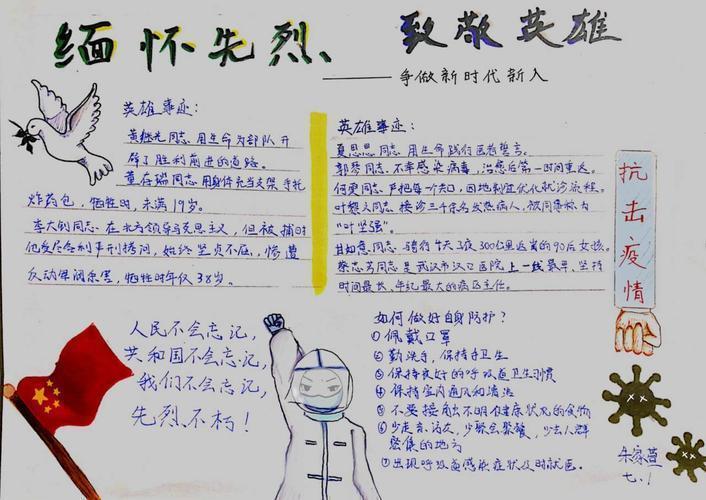 缅怀先烈、致敬英雄
——争做新时代新人
英雄事迹：
黄继光同志用生命为部队开
辟了胜利前进的道路。
董存瑞同志用身体充当支架手托
炸药包，牺牲时，未满19岁。
李大钊同志在北方领导马克思主义，但被捕时
他反尽各种严刑拷问，始终坚贞不屈，惨遭
反动军阀杀害，牺牲时年仅38岁。
英雄事迹：
夏思思同志用生命践行医者誓言。
郭琴同志不幸感染病毒，治愈后第一时间重返。
何雯同志严把每个知口，因地制宜优化就诊流程。
叶黎久同志接诊三千余名发热病人，被同事称为
"叶坚强"。
甘如意同志骑行4天3夜300公里返岗的90后女孩。
蔡志芳同志是武汉市汉口医院上一线最早，坚持
时间最长，年纪最大的病区主任。
抗击疫情
人民不会忘记，
共和国不会忘记，
我们不会忘记，
先烈不朽！
如何做好自身防护？
①佩戴口罩
②勤洗手，保持手卫生
③保持良好的呼吸道卫生习惯
④保持室内通风和清洁
⑤不要接触不明健康状况的食物
⑥少走亲访友，少聚会聚餐，少去人群
密集的地方
⑦出现呼吸道感染症状及时就医。
朱家萱
七.1